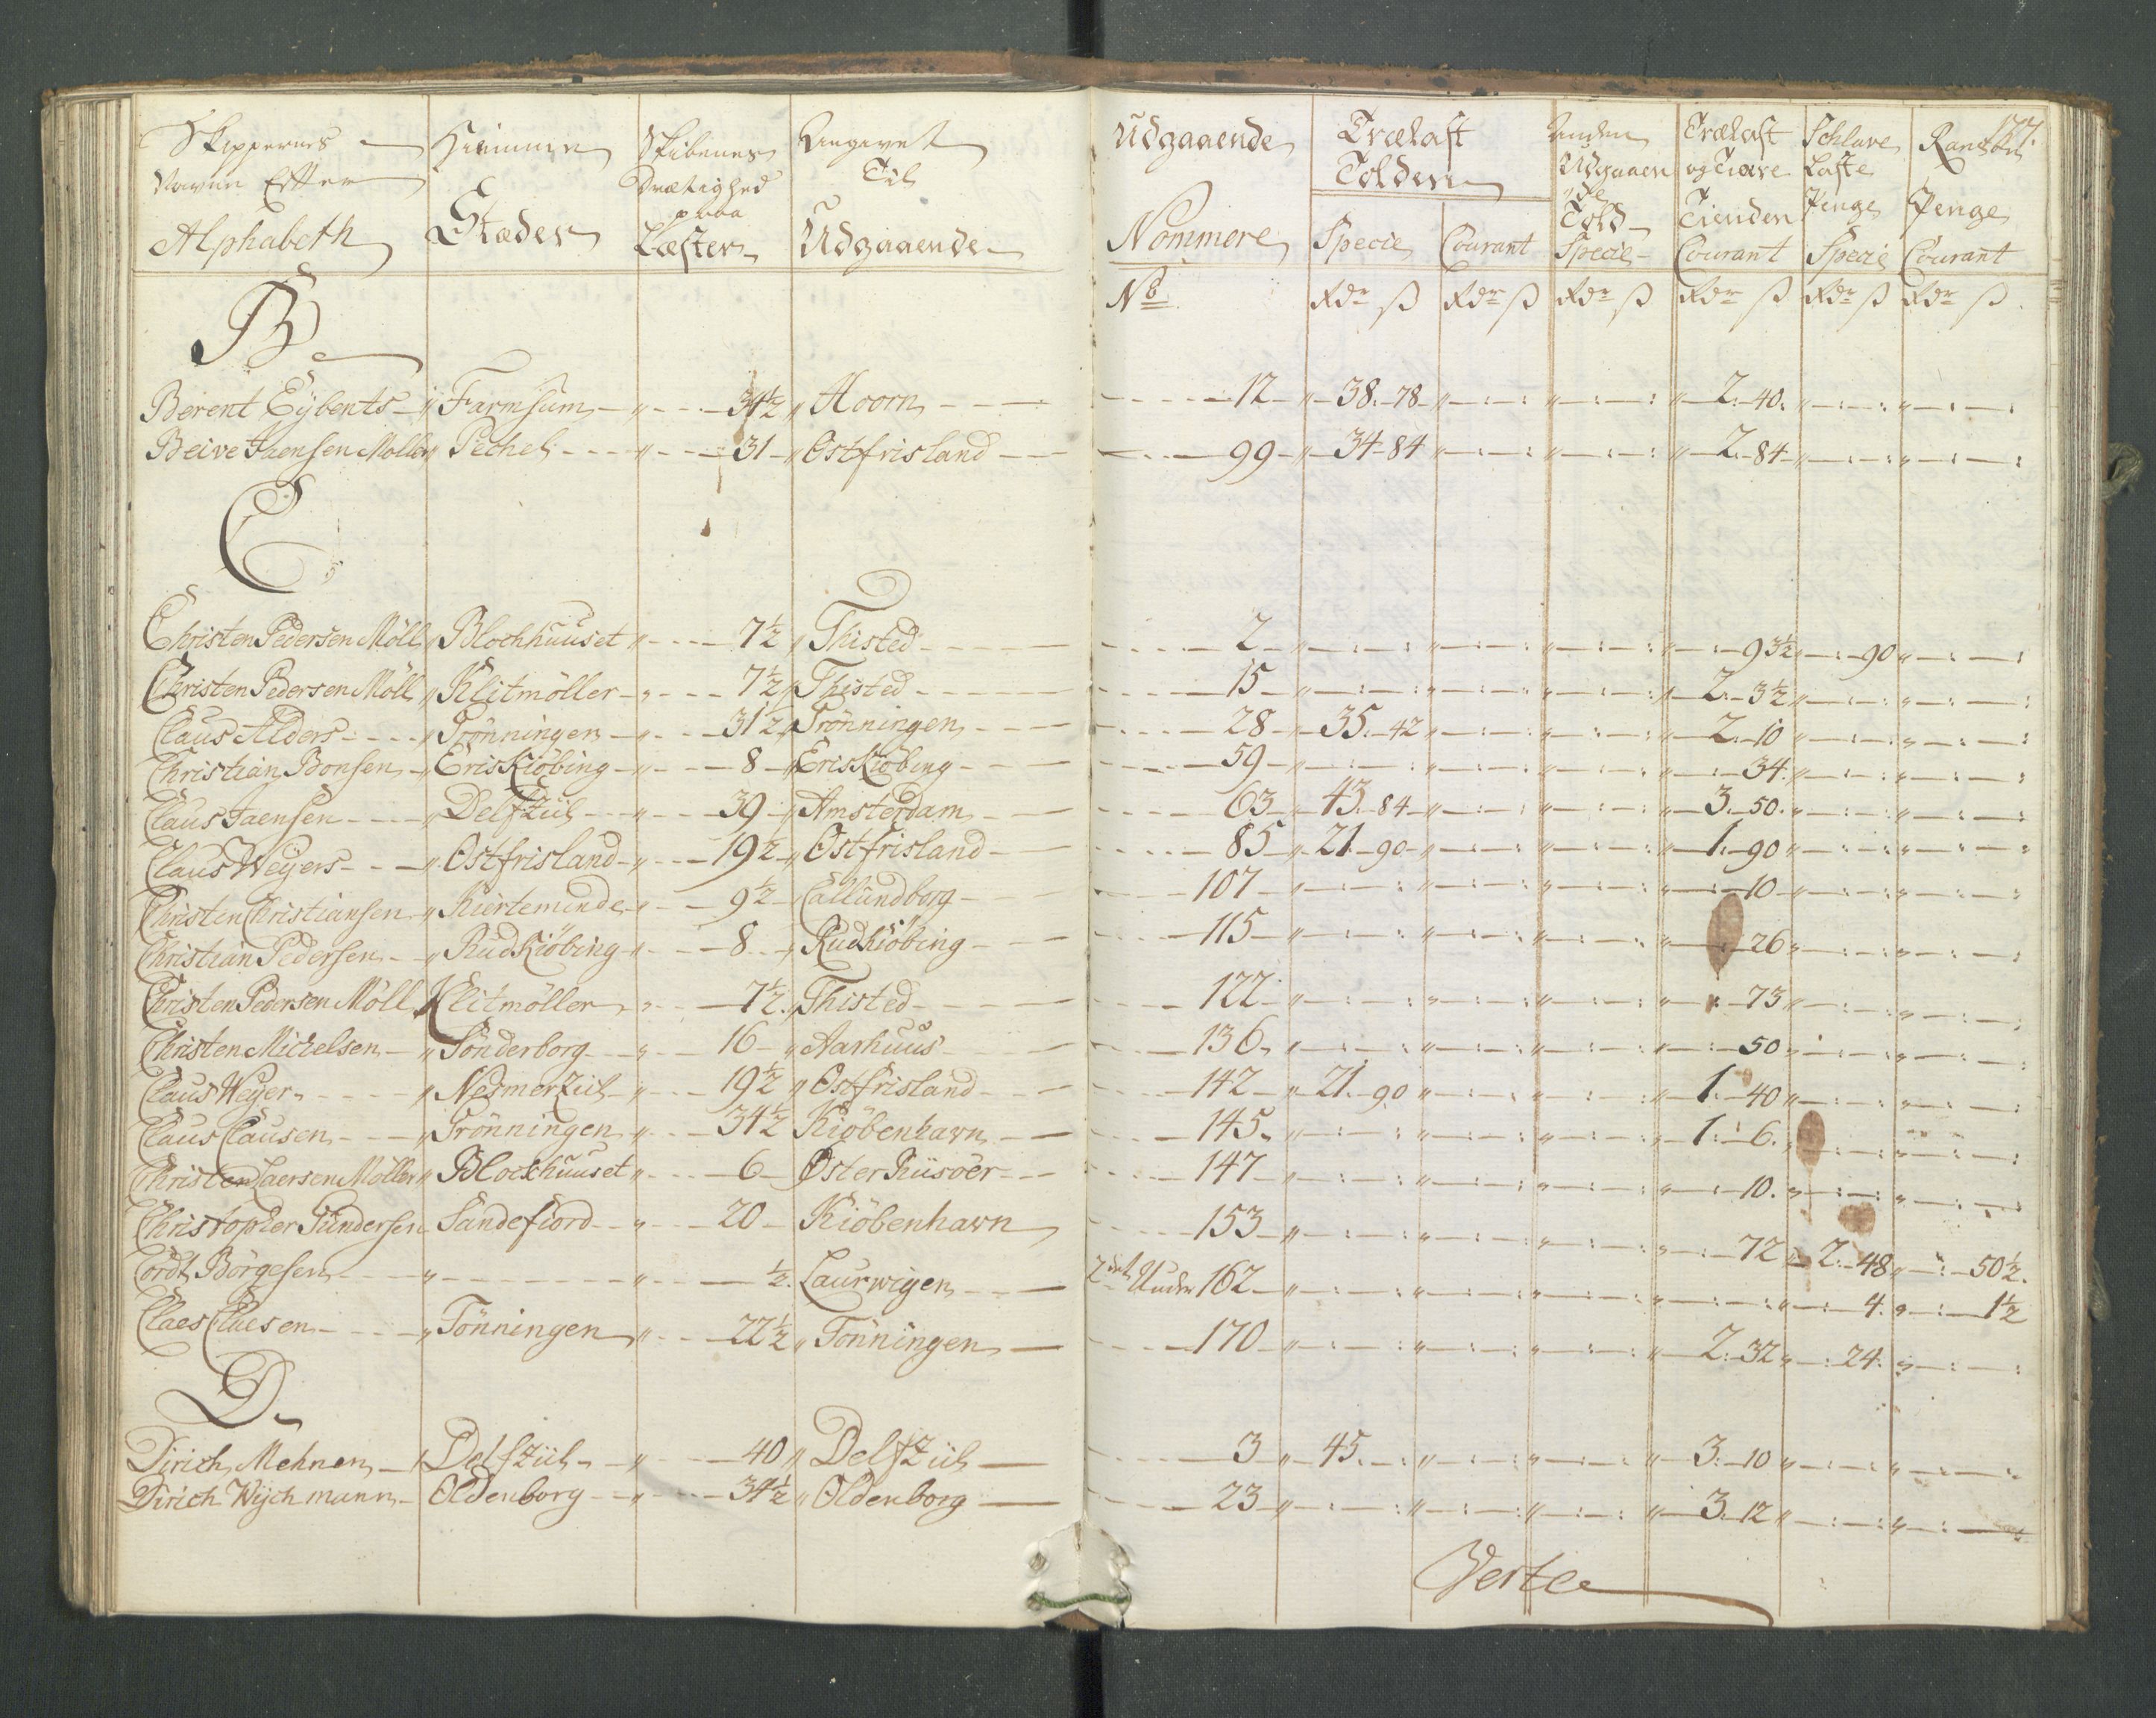 177.
Skippernes Navne Efter Alphabeth | Hiemme Stæder | Skibenes Drægtighed paa Læster | Angivet Til Udgaaende | Udgaaende Nommere | Trælast Tolden Specie | Courant | Anden Udgaaende Told Specie | Trælast og Tiære Tienden Courant | Schlave Kaste Penge Specie | Penge Courant
No | Rdr ß | Rdr ß | Rdr ß | Rdr ß | Rdr ß | Rdr ß
B
Berent Eybents " Farmsum " 31½ " Hoorn 12 " 38. 78 " " 2. 40. " "
Beive Jaensen Moller " Pechel " 31 " Ostfrisland 99 " 34 84 " " 2. 84 " "
C
Christen Pedersen Möll " Blochhuuset " 7½ " Thisted 2 " " " 93½ " 90 "
Christen Pedersen Möll " Klitmöller " 7½ " Thisted 15 " " " 2. 3½ " "
Claus Alders " Grönningen " 31½ Grönningen 28 " 35. 42 " " 2. 10 " "
Christian Bonsen " Eriskiöbing " 8 " Eriskiöbing 59 " " " 34. " "
Claus Jaensen " Delfziil " 39 " Amsterdam 63 " 43. 84 " " 3. 50. " "
Claus Weyers " Ostfrisland " 19½ " Ostfrisland 85 " 21. 90 " " 1. 90 " "
Christen Christiansen " Kierteminde " 9½ " Callundborg 107 " " " 10 " "
Christian Pedersen " Rudkiöbing " 8 " Rudkiöbing 115 " " " 26 " "
Christen Pedersen Möll Klitmöller " 7½ " Thisted 122 " " " 73 " "
Christen Michelsen " Sönderborg " 16 " Aarhuus 136 " " " 50 " "
Claus Weyer " Nesmerziil " 19½ " Ostfrisland 142 " 21. 90 " " 1. 40 " "
Claus Clausen " Grönningen " 34½ Kiöbenhavn 145 " " " 1. 6. " "
Christen Laersen Möller " Blockhuuset " 6 Öster Riisöer 147 " " " 10. " "
Christopher Gundersen Sandefiord " 20 Kiöbenhavn 153 " " " 72 " 2. 48 " 50½.
Cordt Börgesen " " ½. Laurwigen 2det Under 162 " " " " 4. " 1½
Claes Claesen " Tönningen " 22½ " Tönningen 170 " " " 2. 32 " 24. "
D
Dirich Mehnen Delfziil " 40 " Delfziil 3 " 45. " " 3. 10 " "
Dirich Wychmann Oldenborg " 34½ " Oldenborg 23 " " " 3. 12 " "
Verte